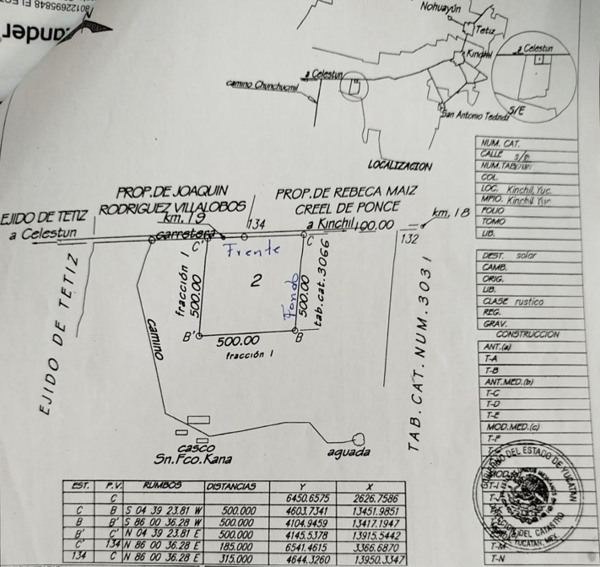 80122695848
ander
Nohuayún
Tetiz
Kinchil
a Celestun
camino Chunchucmil
San Antonio Tedzidz
a Celestun
S/E
LOCALIZACION
PROP. DE JOAQUIN
RODRIGUEZ VILLALOBOS
PROP. DE REBECA MAIZ
CREEL DE PONCE
EJIDO DE TETIZ
a Celestun
km, 19
carretera
134
a Kinchil
100.00
132
km, 18
C'
Frente
C
fracción I
500.00
2
Fondo
500.00
tab.cat.3066
B'
500.00
B
fracción I
EJIDO DE TETIZ
camino
TAB.CAT.NUM.3031
casco
Sn.Fco.Kana
aguada
NUM. CAT.
CALLE s/n
COL.
LOC. Kinchil, Yuc.
MPIO. Kinchil Yuc
FOLIO
TOMO
LIB.
DEST. solar
CAMB.
ORIG.
LIB.
CLASE rustico
REG.
GRAV.
CONSTRUCCION
ANT.(a)
T-A
T-B
ANT.MED.(b)
T-C
T-D
T-E
MOD.MED.(c)
T-F
T-M
T-N
DEL ESTADO DE YUCATAN
DEL CATASTRO
YUCATAN, MEX.
EST. P.V. RUMBOS DISTANCIAS Y X
C 6450.6575 2626.7586
C B S 04 39 23.81 W 500.000 4603.7341 13451.9851
B B' S 86 00 36.28 W 500.000 4104.9459 13417.1947
B' C' N 04 39 23.81 E 500.000 4145.5378 13915.5442
C' 134 N 86 00 36.28 E 185.000 6541.4615 3366.6870
134 C N 86 00 36.28 E 315.000 4644.3260 13950.3347